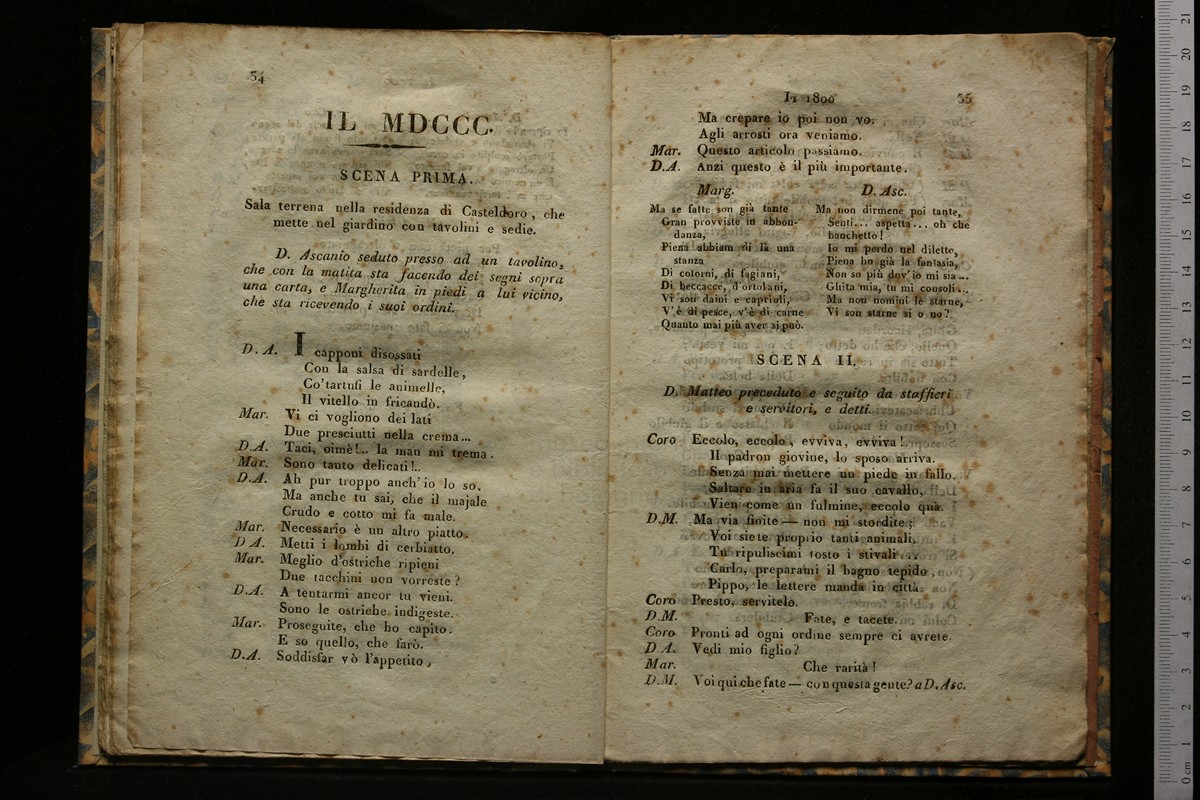 34
IL MDCCC.
SCENA PRIMA.
Sala terrena nella residenza di Casteldoro, che
mette nel giardino con tavolini e sedie.
D. Ascanio seduto presso ad un tavolino,
che con la matita sta facendo dei segni sopra
una carta, e Margherita in piedi a lui vicino,
che sta ricevendo i suoi ordini.
D. A. I capponi disossati
Con la salsa di sardelle,
Co'tartufi le animelle,
Il vitello in fricandò.
Mar. Vi ci vogliono dei lati
Due presciutti nella crema...
D.A. Taci, oimè!.. la man mi trema.
Mar. Sono tanto delicati!..
D.A. Ah pur troppo anch'io lo so.
Ma anche tu sai, che il majale
Crudo e cotto mi fa male.
Mar. Necessario è un altro piatto.
D A. Metti i lombi di cerbiatto.
Mar. Meglio d'ostriche ripieni
Due tacchini non vorreste?
D.A. A tentarmi ancor tu vieni.
Sono le ostriche indigeste.
Mar. Proseguite, che ho capito.
E so quello, che farò.
D.A. Soddisfar vò l'appetito,
Il 1800
35
Ma crepare io poi non vo;
Agli arrosti ora veniamo.
Mar. Questo articolo passiamo.
D.A. Anzi questo è il più importante.
Marg.
Ma se fatte son già tante
Gran provviste in abbon-
danza,
Piena abbiam di là una
stanza
Di cotorni, di fagiani,
Di beccacce, d'ortolani,
Vi son daini e caprioli,
V'è di pesce, v'è di carne
Quanto mai più aver si può.
D. Asc.
Ma non dirmene poi tante,
Senti... aspetta... oh che
banchetto!
Io mi perdo nel diletto,
Piena ho già la fantasia,
Non so più dov'io mi sia...
Ghita mia, tu mi consoli...
Ma non nomini le starne,
Vi son starne si o no?
SCENA II.
D. Matteo preceduto e seguito da staffieri
e servitori, e detti.
Coro Eccolo, eccolo, evviva, evviva!
Il padron giovine, lo sposo arriva.
Senza mai mettere un piede in fallo.
Saltare in aria fa il suo cavallo,
Vien come un fulmine, eccolo quà.
D.M. Ma via finite — non mi stordite;
Voi siete proprio tanti animali.
Tu ripuliscimi tosto i stivali...
Carlo, preparami il bagno tepido,
Pippo, le lettere manda in città.
Coro Presto, servitelo.
D.M. Fate, e tacete.
Coro Pronti ad ogni ordine sempre ci avrete.
D A. Vedi mio figlio?
Mar. Che rarità!
D.M. Voi qui che fate — con questa gente? a D. Asc.